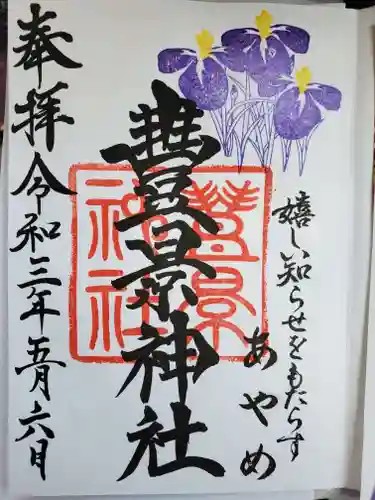 嬉しい知らせをもたらす
あやめ
豊景神社
豊景
神社
奉拝 令和三年五月六日